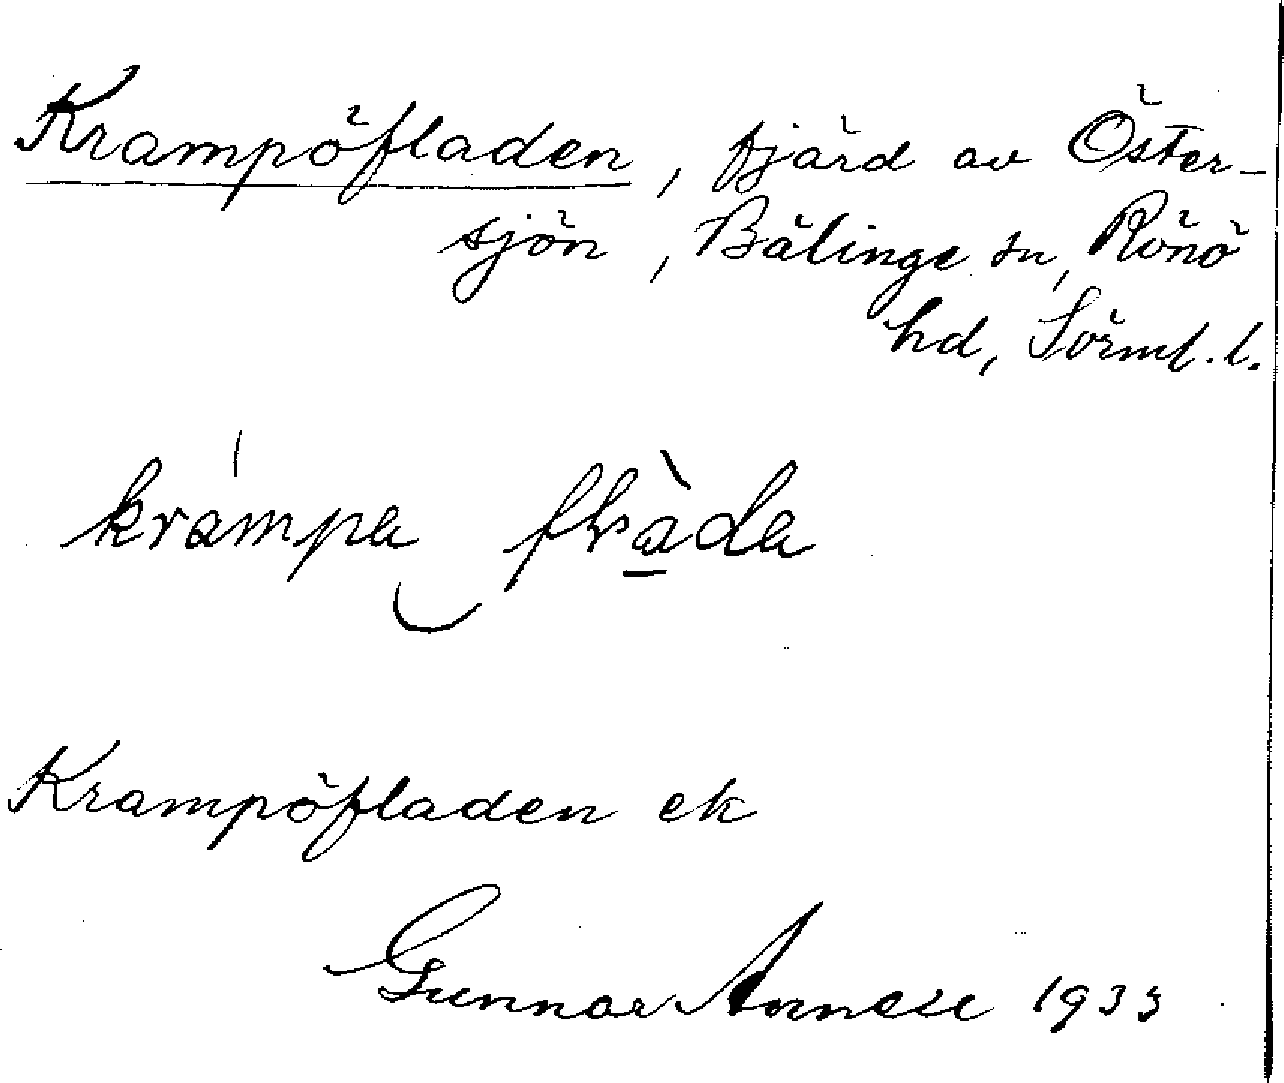 Krampöfladen, fjärd av Öster-
sjön, Bälinge sn, Rönö
hd, Sörml. l.
krampa flada
Krampöfladen ek
Gunnar 1933